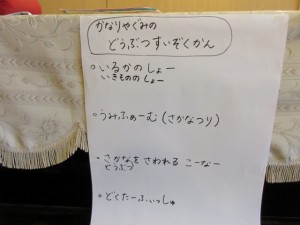 かなりやぐみの
どうぶつすいぞくかん
○いるかのしょー
いきもののしょー
○うみふぁーむ(さかなつり)
○さかなをさわれる こーなー
どうぶつ
○どくたーふぃっしゅ